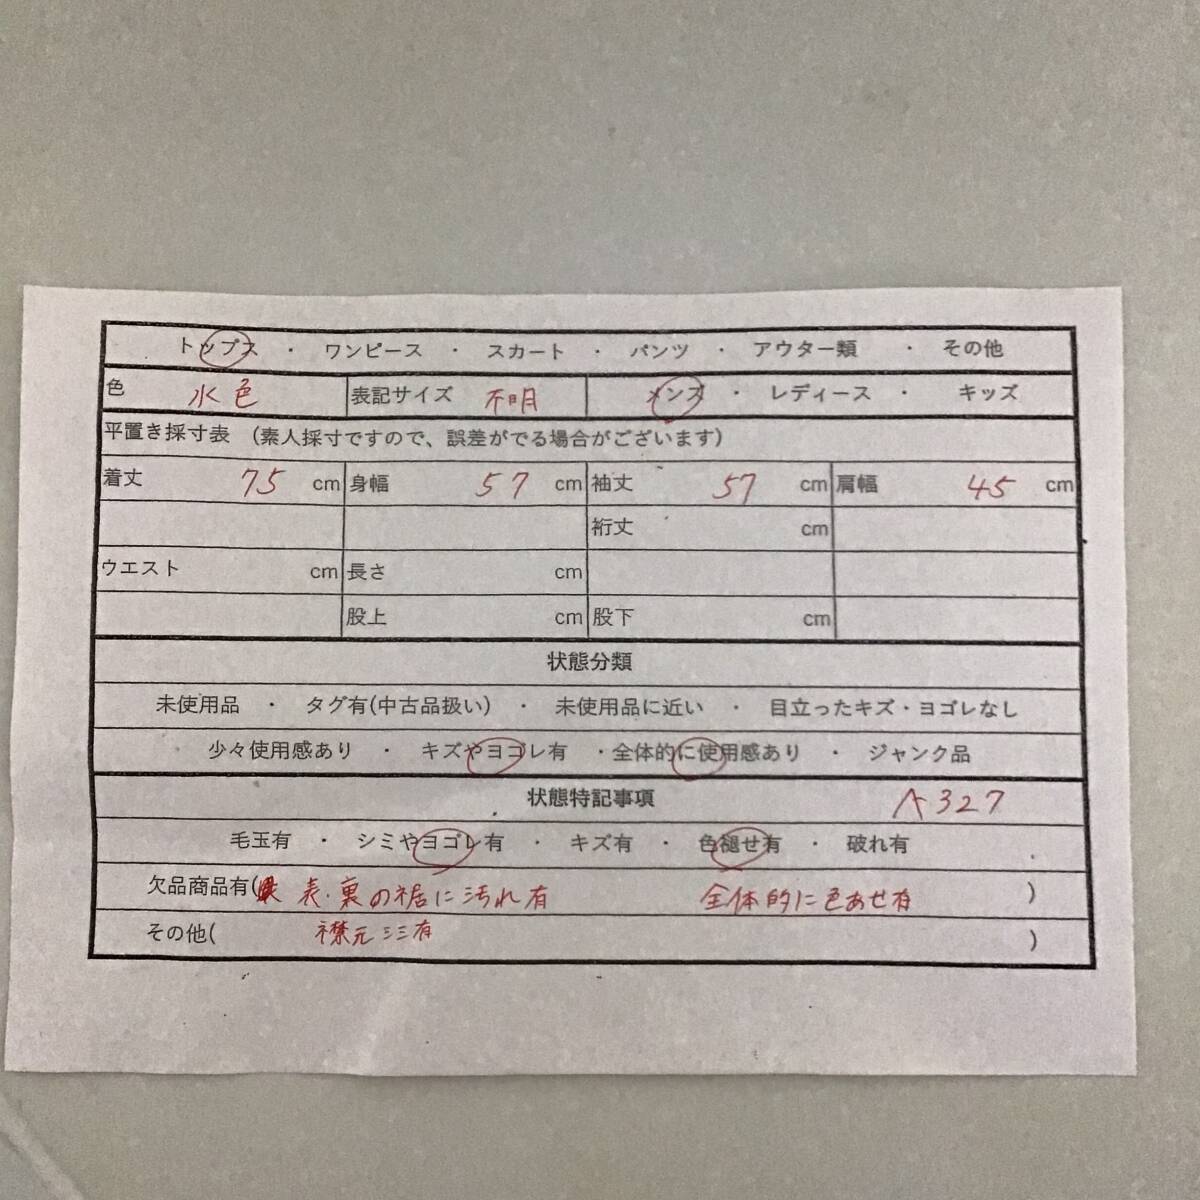 トップス ・ ワンピース ・ スカート ・ パンツ ・ アウター類 ・ その他
色 水色 表記サイズ 不明 メンズ ・ レディース ・ キッズ
平置き採寸表 (素人採寸ですので、誤差がでる場合がございます)
着丈 75 cm 身幅 57 cm 袖丈 57 cm 肩幅 45 cm
裄丈 cm
ウエスト cm 長さ cm
股上 cm 股下 cm
状態分類
未使用品 ・ タグ有(中古品扱い) ・ 未使用品に近い ・ 目立ったキズ・ヨゴレなし
少々使用感あり ・ キズやヨゴレ有 ・全体的に使用感あり ・ ジャンク品
状態特記事項 A327
毛玉有 ・ シミやヨゴレ有 ・ キズ有 ・ 色褪せ有 ・ 破れ有
欠品商品有( 表・裏の裾に汚れ有 全体的に色あせ有 )
その他( 襟元シミ有 )